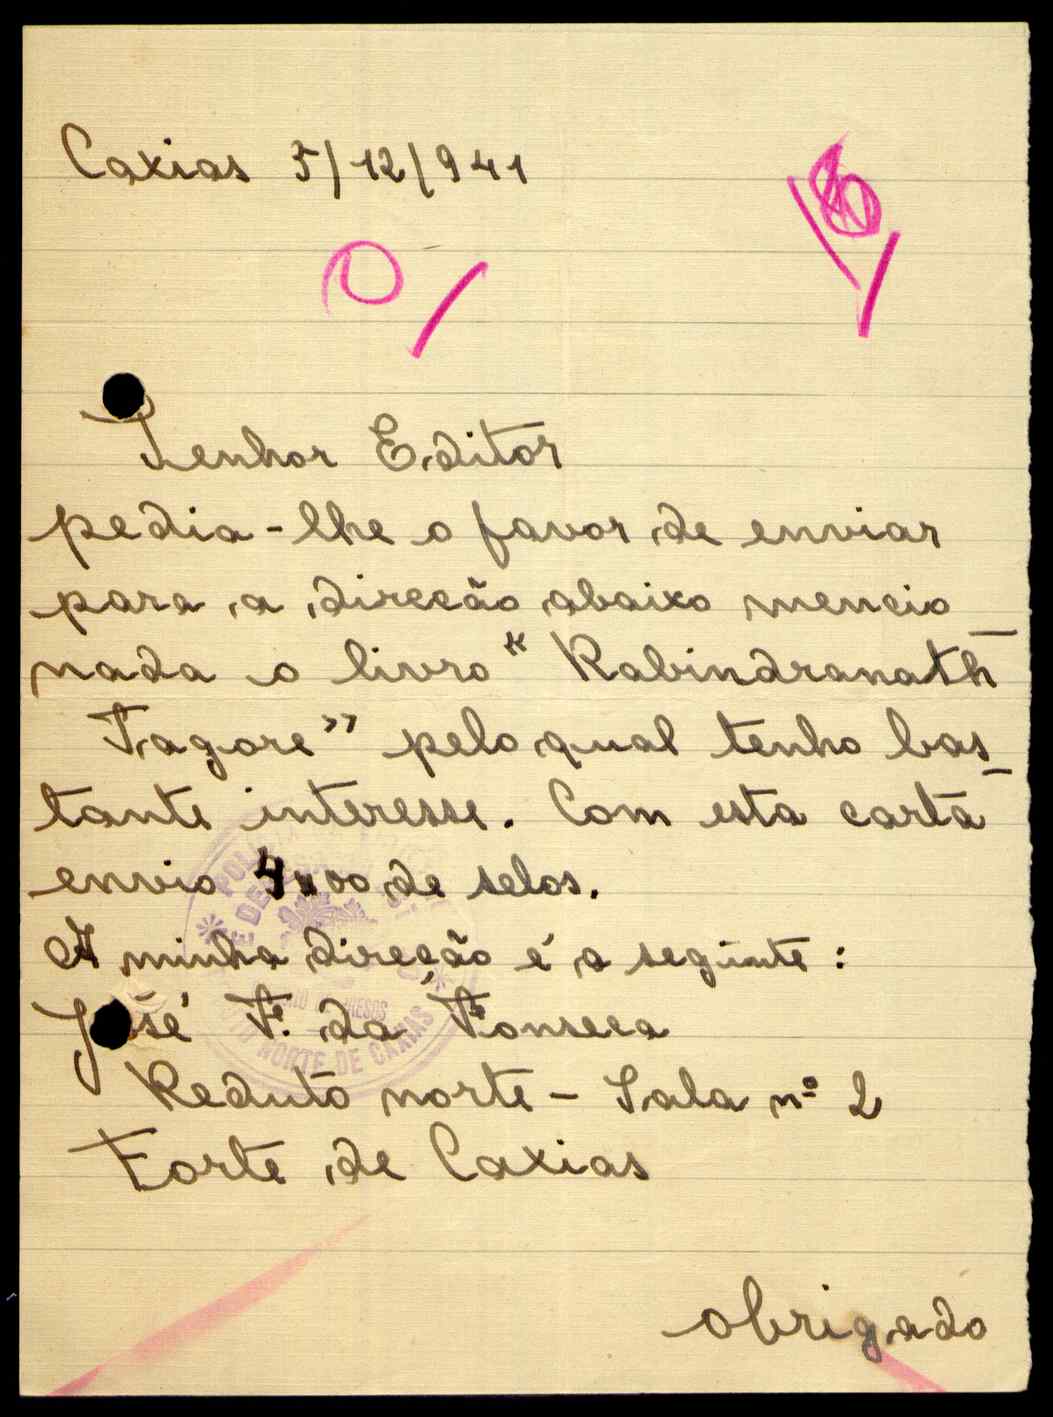 Caxias 5/12/941
Senhor Editor
pedia-lhe o favor de enviar
para a direcão abaixo mencio
nada o livro "Rabindranath
Tagore" pelo qual tenho bas
tante interesse. Com esta carta
envio 4$00 de selos.
A minha direcão é a seguinte:
José F. da Fonseca
Reduto norte - Sala nº 2
Forte de Caxias
obrigado
NORTE DE CAXIAS